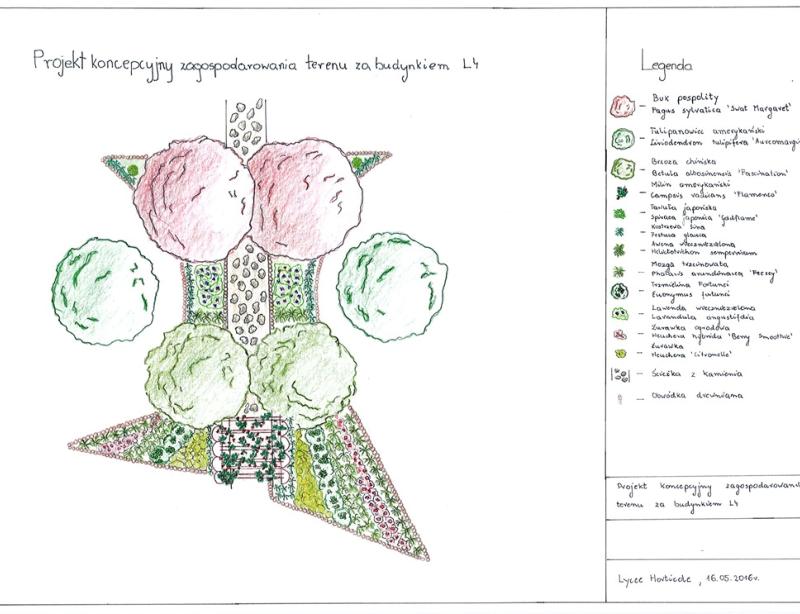 Projekt koncepcyjny zagospodarowania terenu za budynkiem L4
Legenda
Buk pospolity
Fagus sylvatica 'Swat Margaret'
Tulipanowiec amerykański
Liriodendron tulipifera 'Aureomargi
Brzoza chińska
Betula albosinensis 'Fascination'
Milin amerykański
Campsis radicans 'Flamenco'
Tawuła japońska
Spiraea japonica 'Goldflame'
Kostrzewa sina
Festuca glauca
Awena wieczniezielona
Helictotrichon sempervirens
Mozga trzcinowata
Phalaris arundinacea
Trzmielina Fortunei
Euonymus fortunei
Lawenda wieczniezielona
Lavandula angustifolia
Żurawka ogrodowa
Heuchera hybrida 'Berry Smoothie'
Żurawka
Heuchera 'Citronelle'
Ścieżka z kamienia
Obwódka drewniana
Projekt koncepcyjny zagospodarowania
terenu za budynkiem L4
Lycee Horticole, 16.05.2016r.